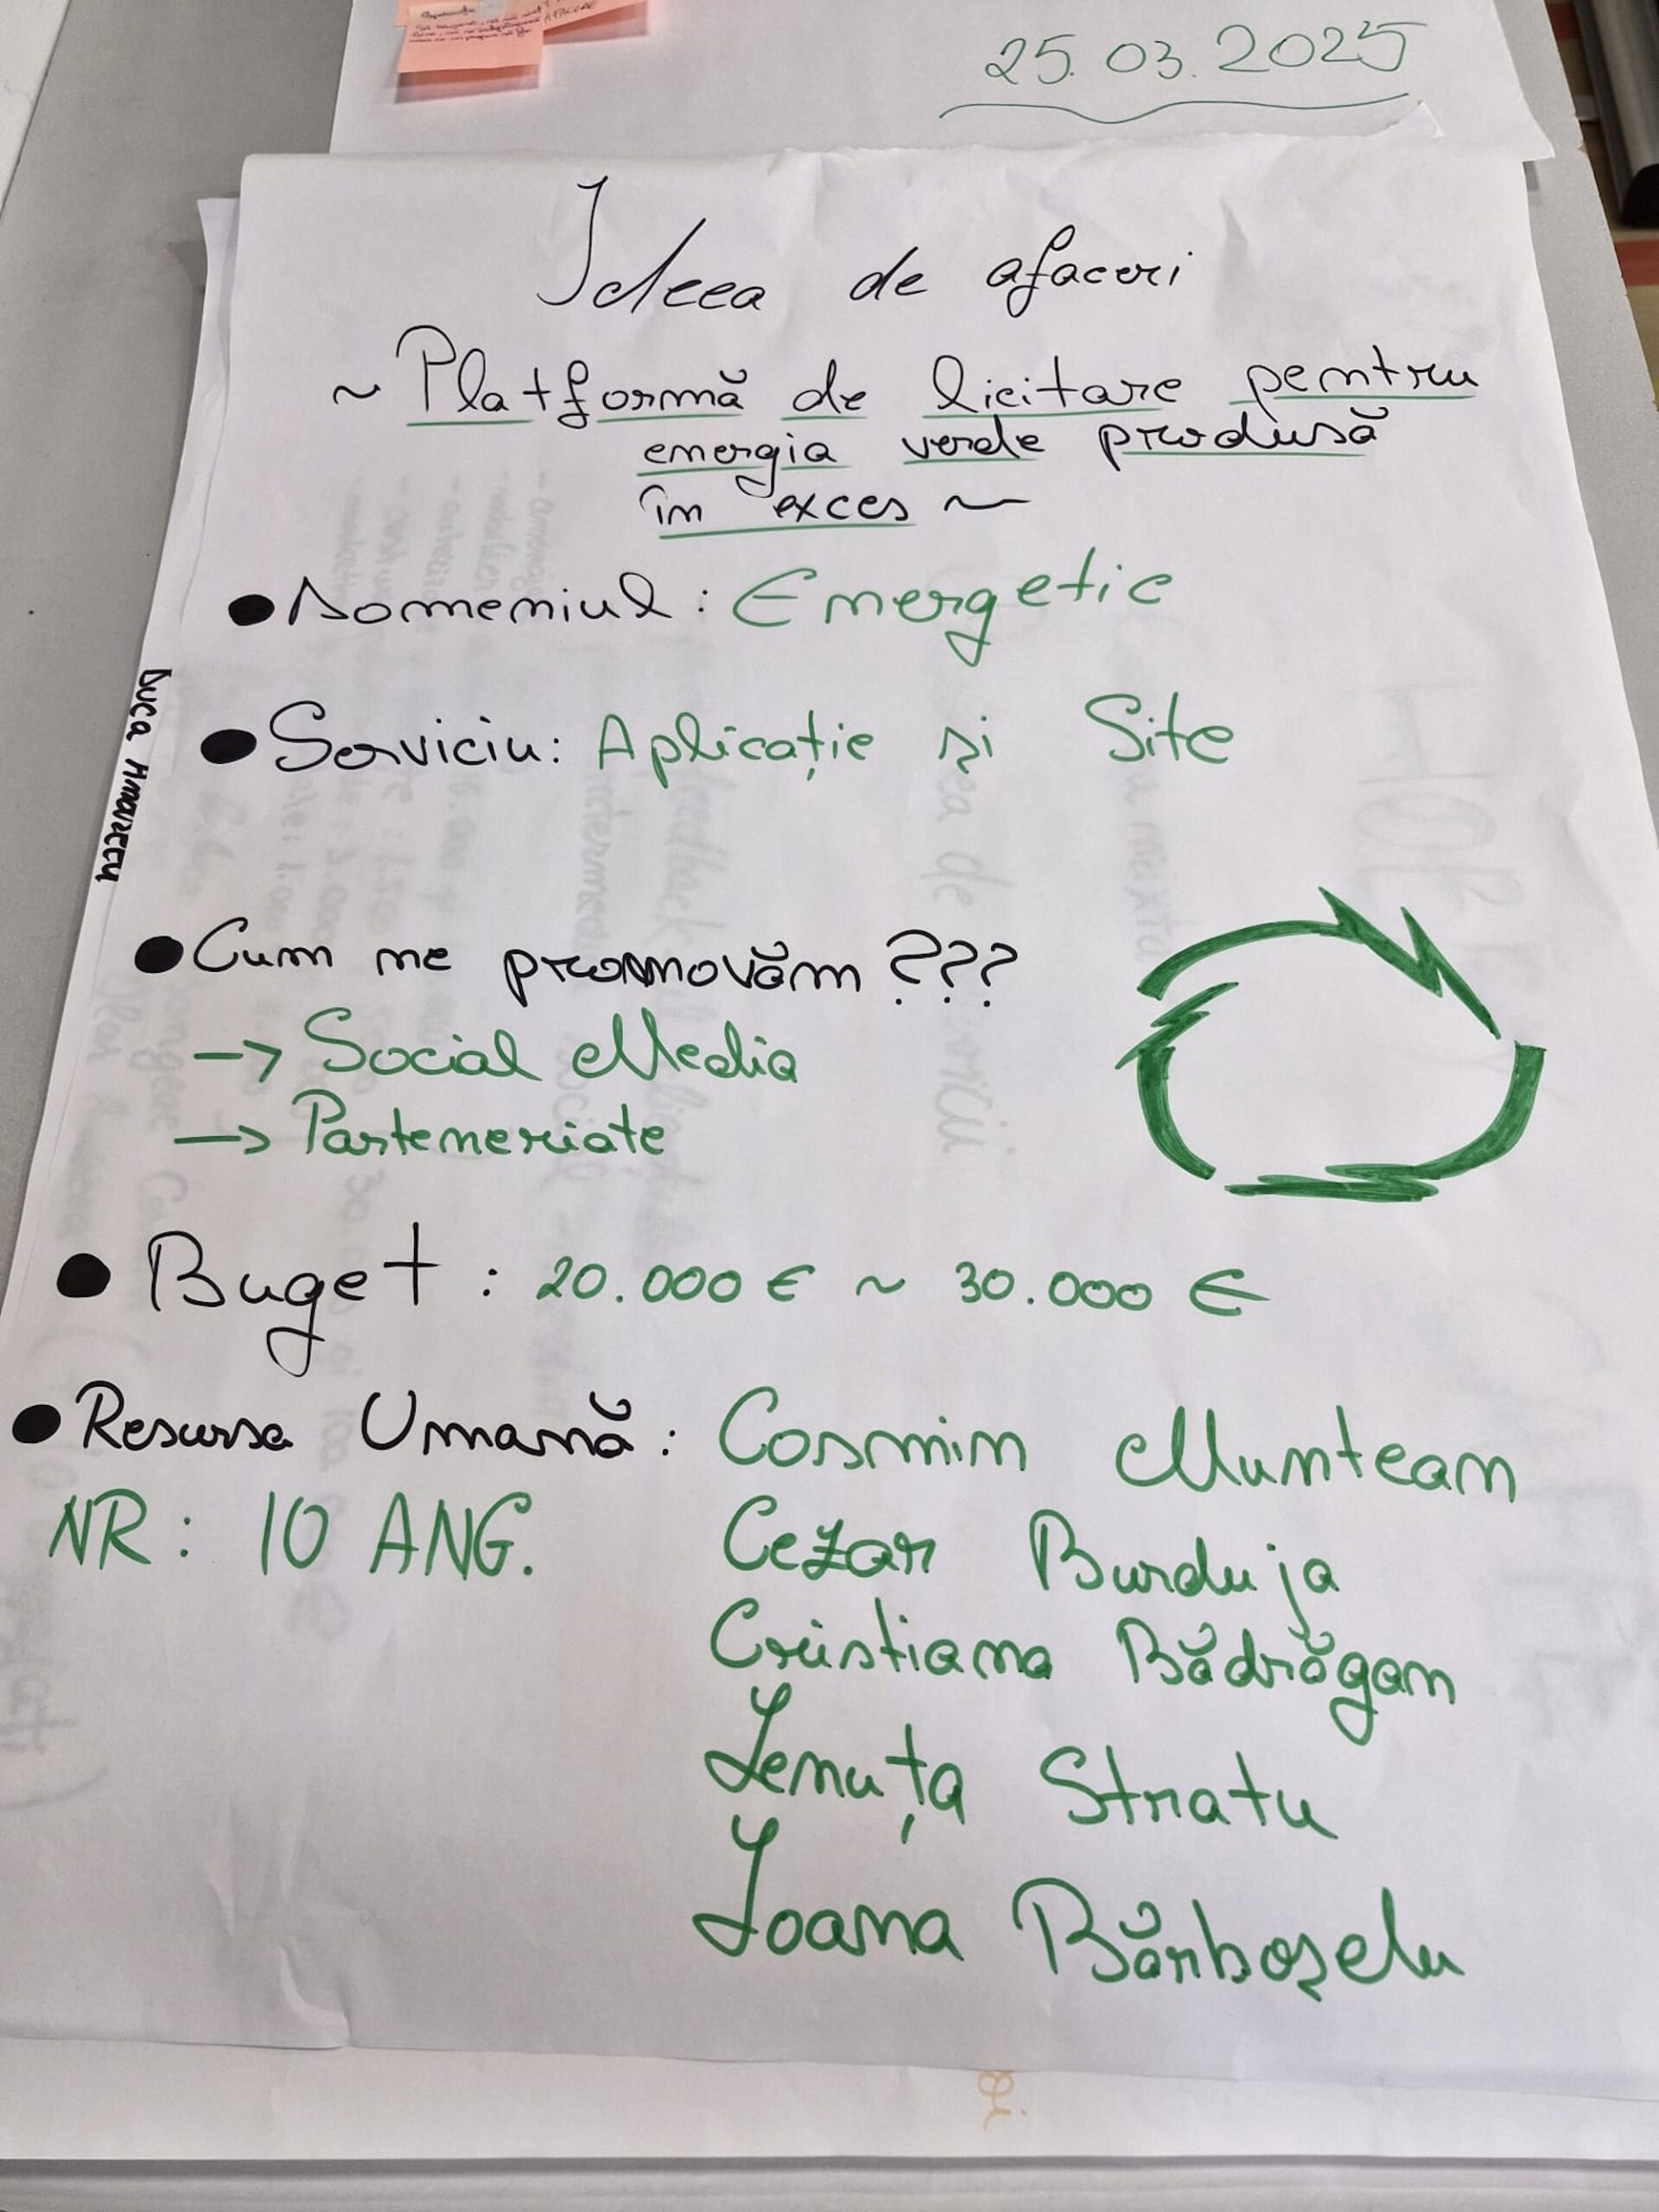 25.03.2025
Ideea de afaceri
~ Platformă de licitare pentru
energia verde produsă
în exces ~
● Domeniul: Energetic
● Serviciu: Aplicație și Site
● Cum ne promovăm ???
→ Social Media
→ Parteneriate
● Buget: 20.000 € ~ 30.000 €
● Resursa Umană: Cosmin Muntean
NR: 10 ANG. Cezar Burduja
Cristiana Bădrăgan
Lenuța Stratu
Ioana Bărboșelu
Duca